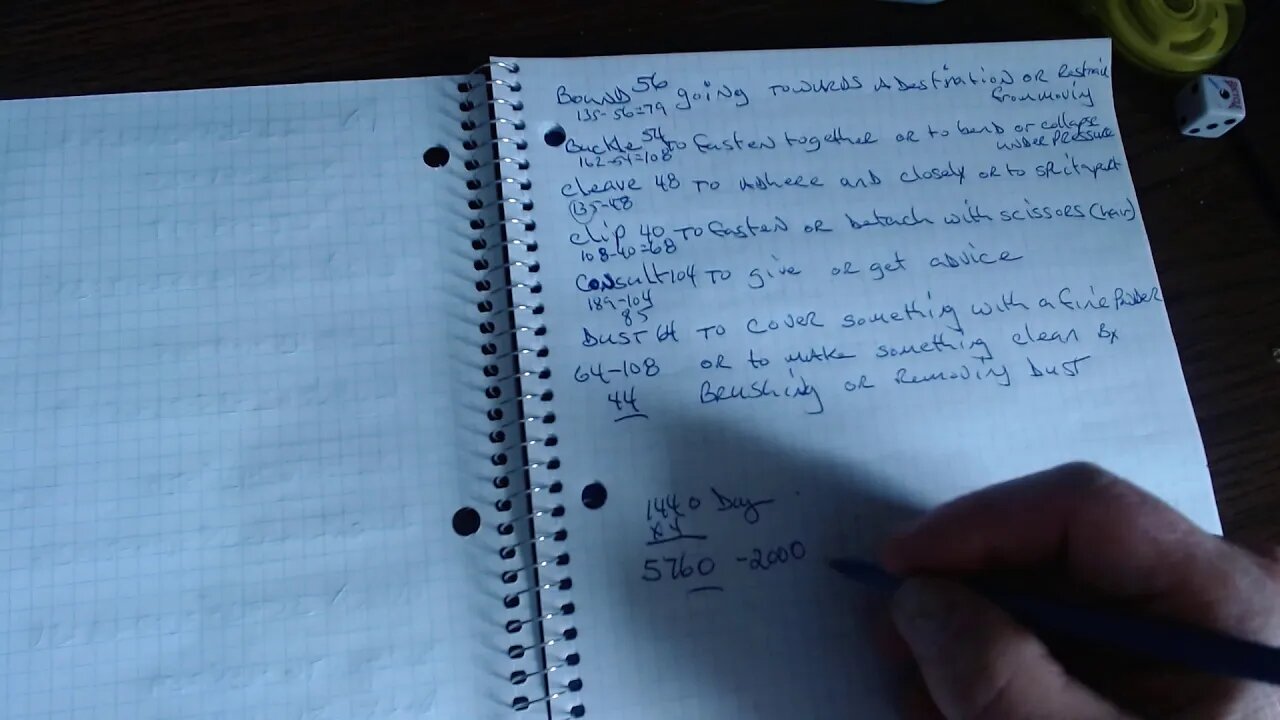 Bound 56 going towards a Destination or Restrain
135-56=79 from moving
Buckle 54 to fasten together or to bend or collapse
162-54=108 under pressure
cleave 48 to adhere and closely or to split apart
135-48
clip 40 to fasten or detach with scissors (hair)
108-40=68
Consult 104 to give or get advice
189-104
85
Dust 64 to cover something with a fine powder
64-108 or to make something clean by
44 Brushing or removing Dust
1440 Day
x4
5760 -2000